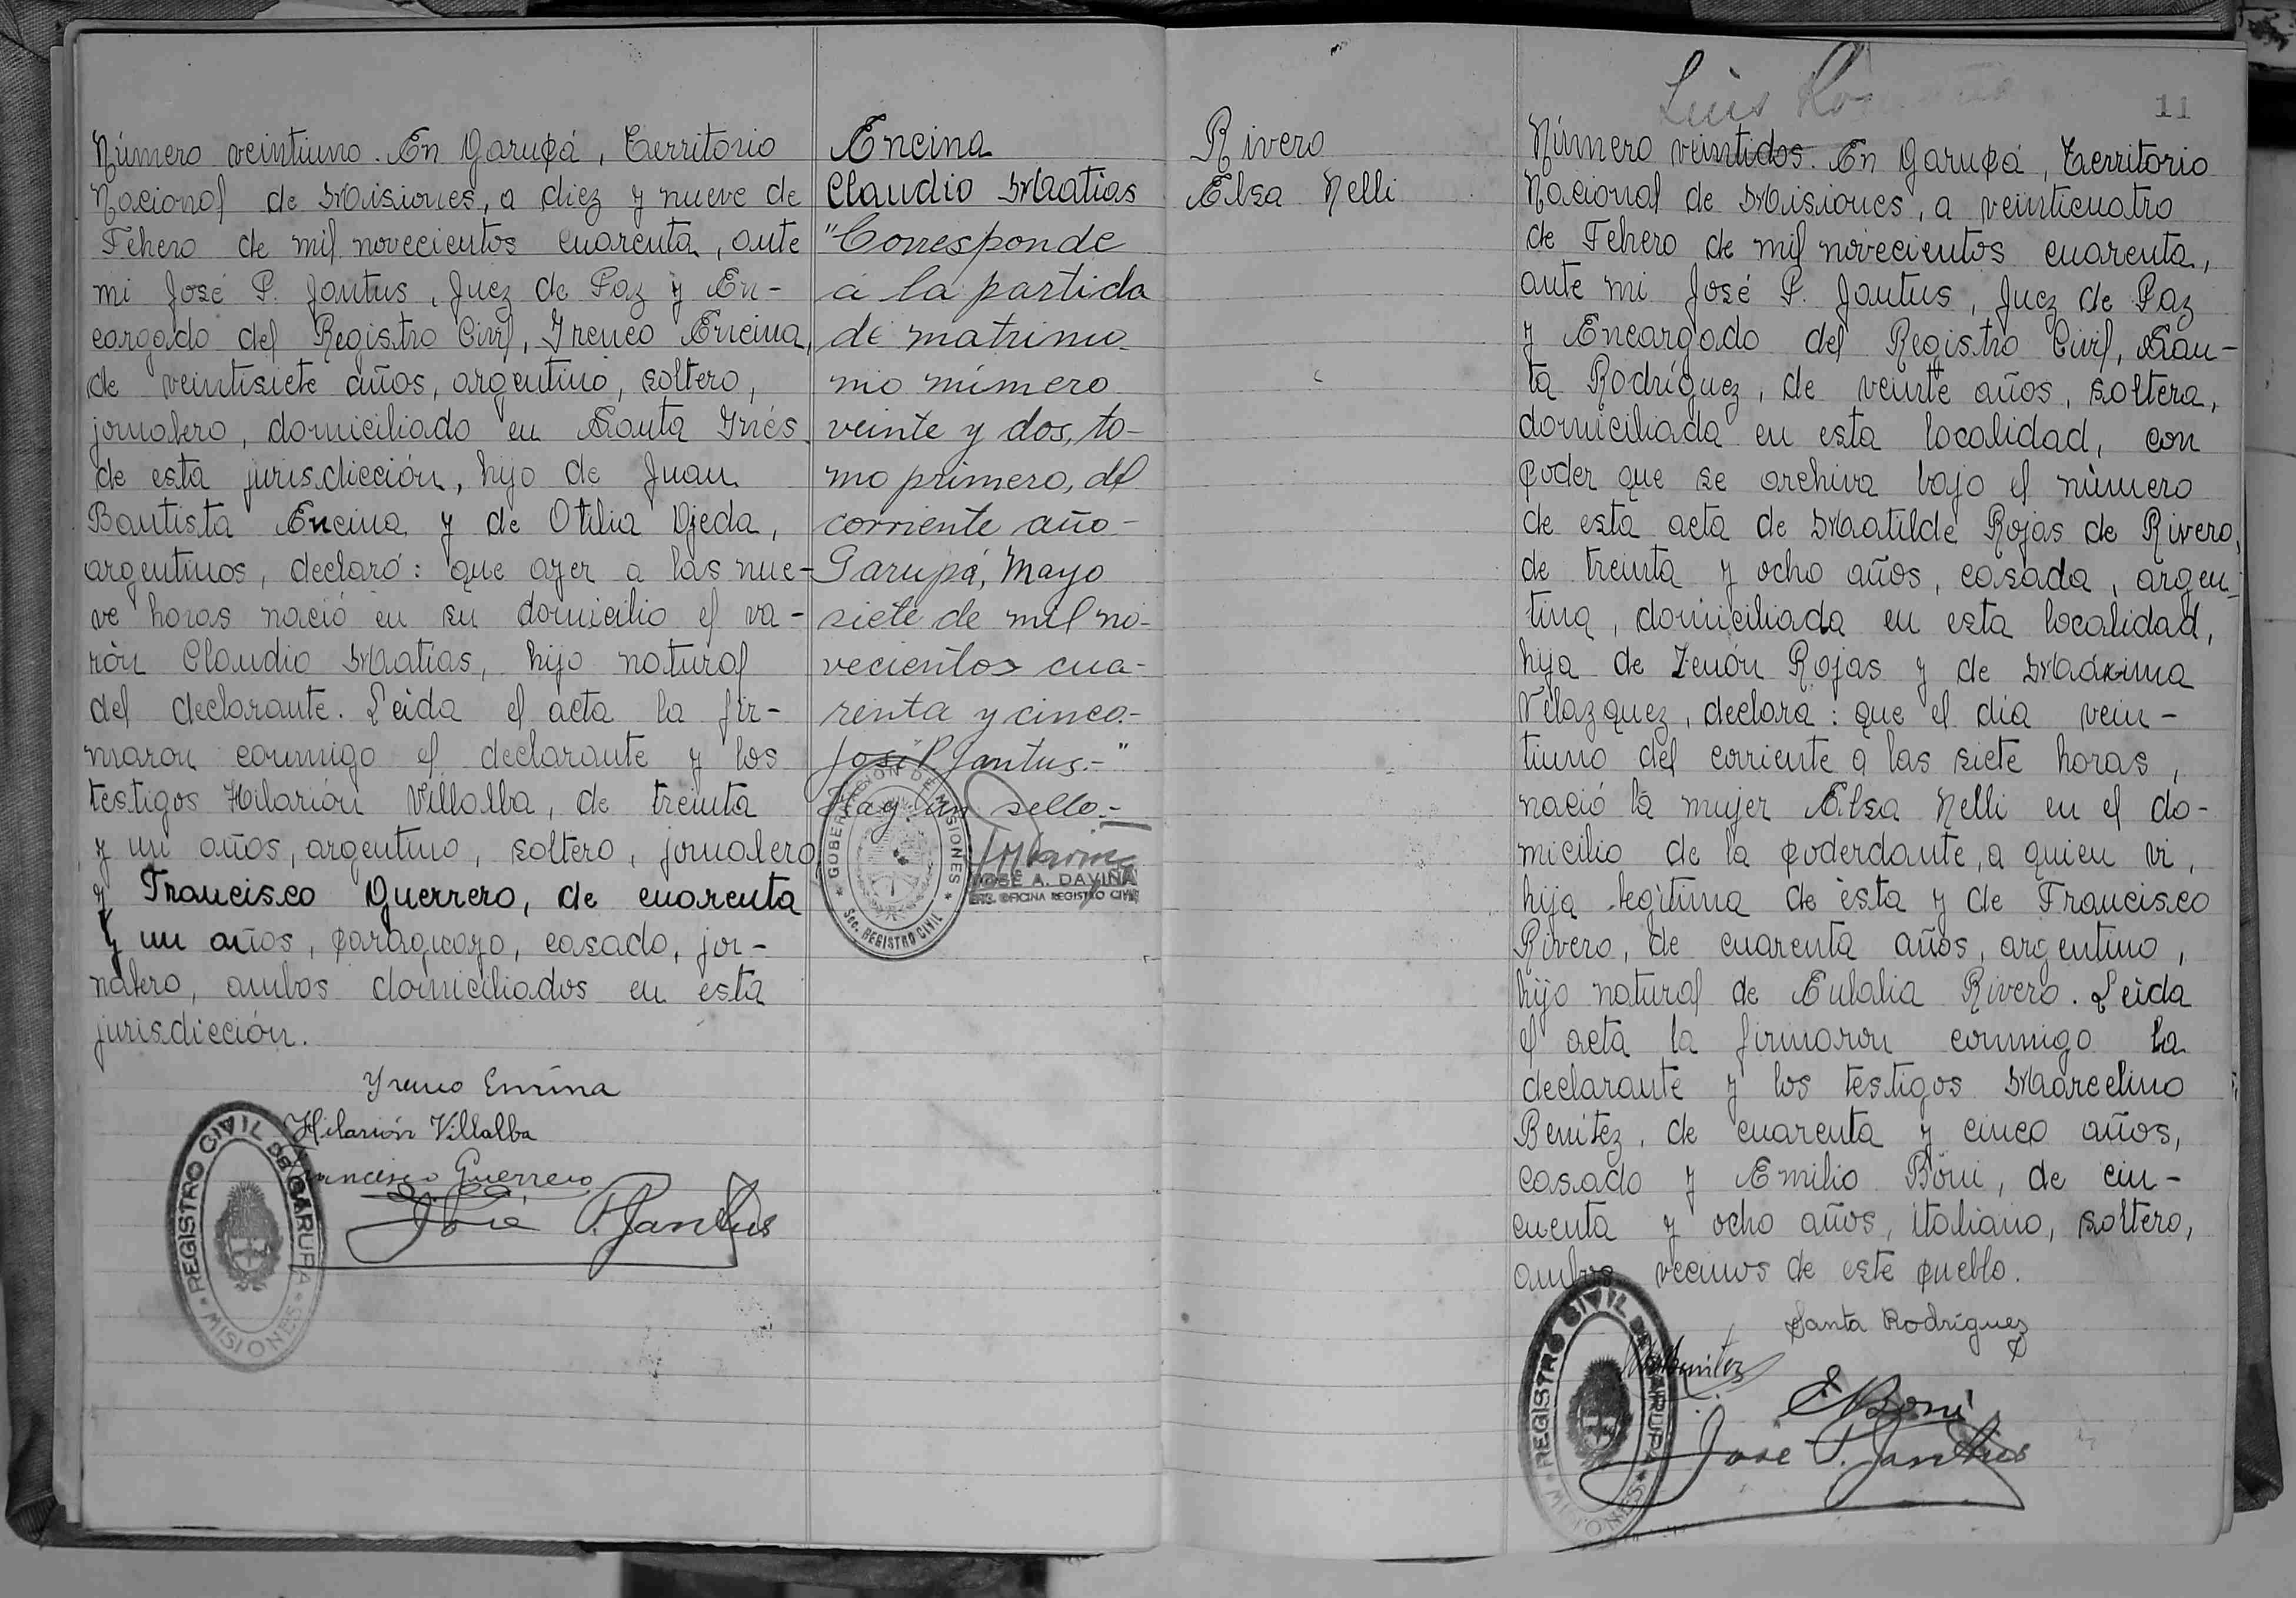 Número veintiuno. En Garupá, Territorio
Nacional de Misiones, a diez y nueve de
Febrero de mil novecientos cuarenta, ante
mi José P. Jantus, Juez de Paz y En-
cargado del Registro Civil, Ireneo Encina,
de veintisiete años, argentino, soltero,
jornalero, domiciliado en Santa Inés
de esta jurisdicción, hijo de Juan
Bautista Encina y de Otilia Ojeda,
argentinos, declaró: que ayer a las nue-
ve horas nació en su domicilio el va-
rón Claudio Matias, hijo natural
del declarante. Leida el acta la fir-
maron conmigo el declarante y los
testigos Hilarión Villalba, de treinta
y un años, argentino, soltero, jornalero
y Francisco Guerrero, de cuarenta
y un años, paraguayo, casado, jor-
nalero, ambos domiciliados en esta
jurisdicción.
Yreneo Encina
Hilarión Villalba
Francisco Guerrero
José P. Jantus
REGISTRO CIVIL DE GARUPA
MISIONES
Encina
Claudio Matias
"Corresponde
á la partida
de matrimo-
nio número
veinte y dos, to-
mo primero, del
corriente año-
Garupá, Mayo
siete de mil no-
vecientos cua-
renta y cinco.-
José P. Jantus.-"
Hay un sello.-
GOBERNACION DE MISIONES
Sec. REGISTRO CIVIL
JOSÉ A. DAVIÑA
ENC. OFICINA REGISTRO CIVIL
Rivero
Elsa Nelli
Luis
11
Número veintidos. En Garupá, Territorio
Nacional de Misiones, a veinticuatro
de Febrero de mil novecientos cuarenta,
ante mi José P. Jantus, Juez de Paz
y Encargado del Registro Civil, San-
ta Rodríguez, de veinte años, soltera,
domiciliada en esta localidad, con
poder que se archiva bajo el número
de esta acta de Matilde Rojas de Rivero,
de treinta y ocho años, casada, argen-
tina, domiciliada en esta localidad,
hija de Zenón Rojas y de Máxima
Velazquez, declara: que el día vein-
tiuno del corriente a las siete horas,
nació la mujer Elsa Nelli en el do-
micilio de la poderdante, a quien vi,
hija legítima de ésta y de Francisco
Rivero, de cuarenta años, argentino,
hijo natural de Eulalia Rivero. Leida
el acta la firmaron conmigo la
declarante y los testigos Marcelino
Benítez, de cuarenta y cinco años,
casado y Emilio Böni, de cin-
cuenta y ocho años, italiano, soltero,
ambos vecinos de este pueblo.
Santa Rodríguez
Benitez
E Boni
José P. Jantus
REGISTRO CIVIL DE GARUPA
MISIONES